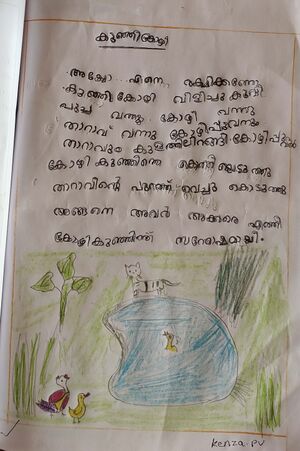 കുഞ്ഞിക്കോഴി
അയ്യോ... എന്നെ രക്ഷിക്കണേ
കുഞ്ഞി കോഴി വിളിച്ചു കൂവി
പൂച്ച വന്നു. കോഴി വന്നു
താറാവ് വന്നു കോഴിപ്പൂവനും
താറാവും കുളത്തിലിറങ്ങി കോഴിപ്പൂവൻ
കോഴി കുഞ്ഞിനെ കൊത്തിയെടുത്തു
താറാവിന്റെ പുറത്ത് വെച്ചു കൊടുത്തു
അങ്ങനെ അവർ അക്കരെ എത്തി
കോഴികുഞ്ഞിന് സന്തോഷമായി.
Kenza. PV